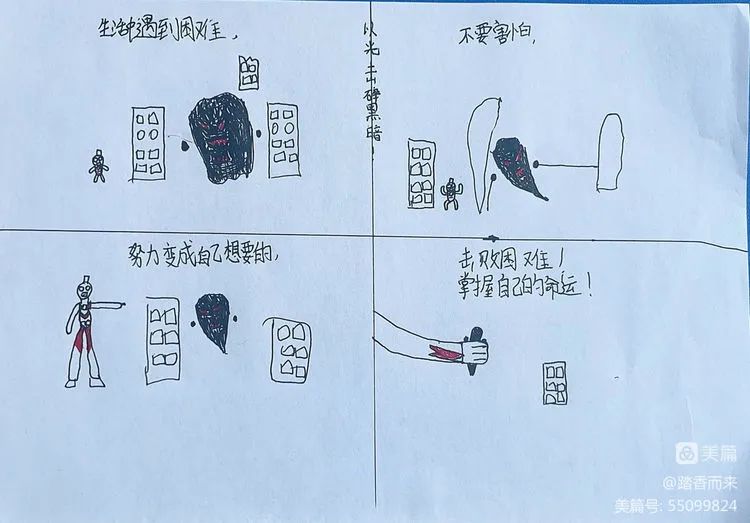 生活中遇到困难，
以光击碎黑暗
不要害怕，
努力变成自己想要的，
击败困难！
掌握自己的命运！
美篇
@踏香而来
美篇号: 55099824